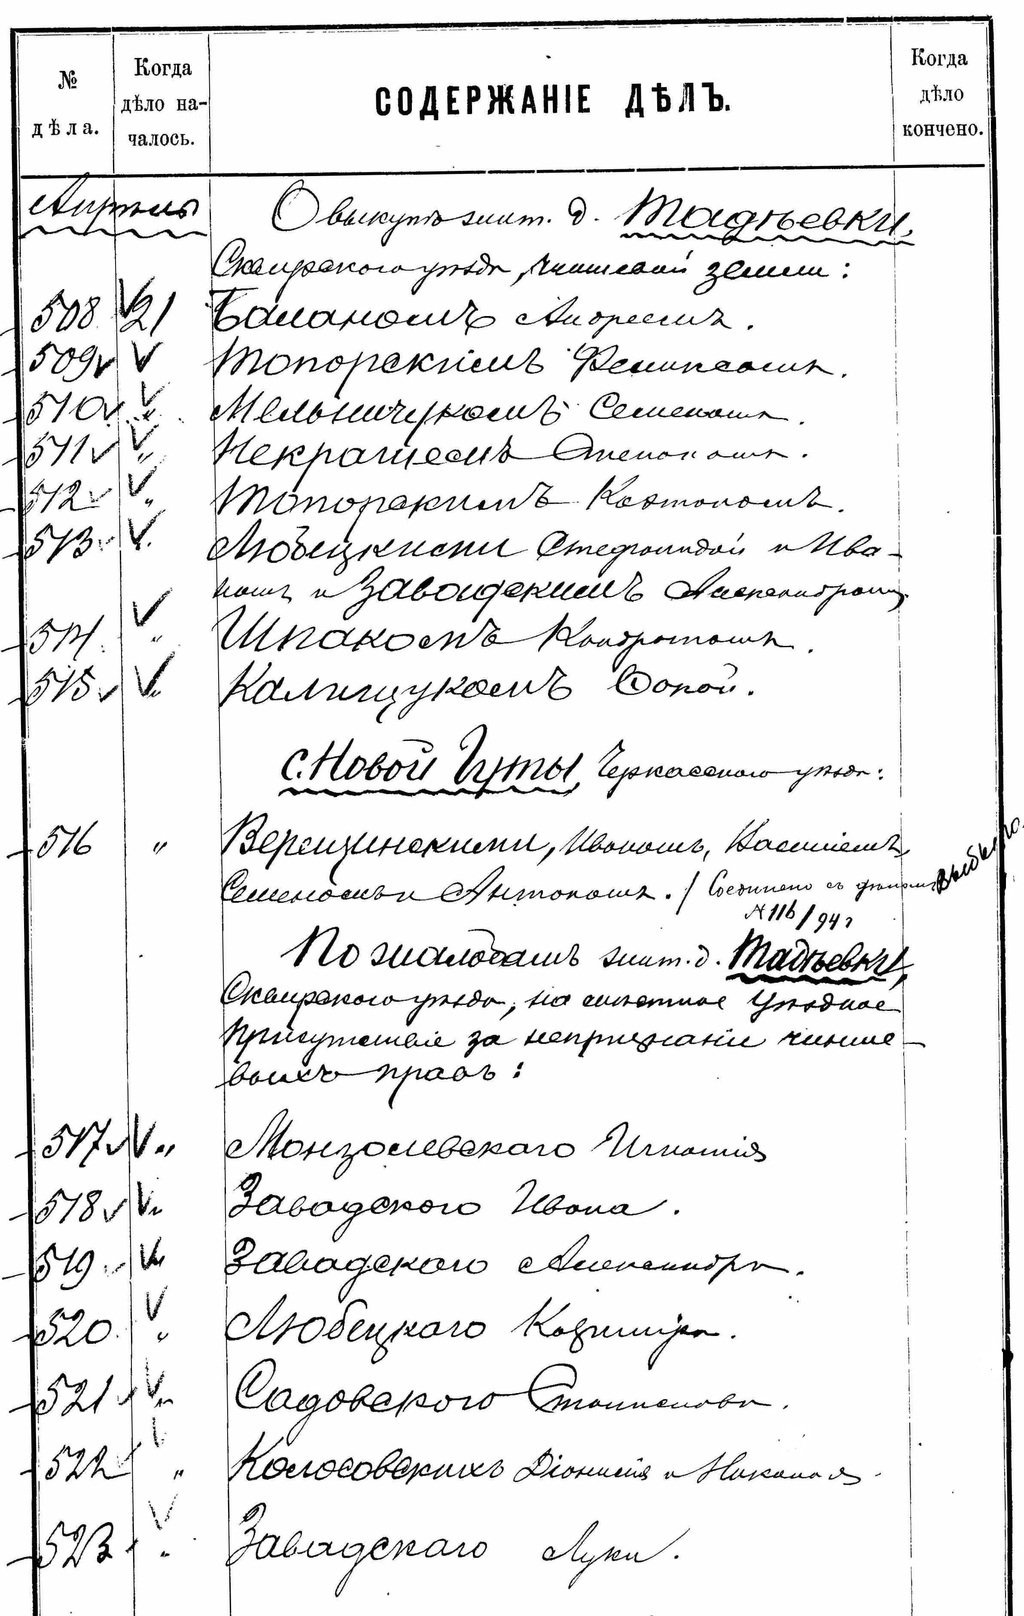 № дѣла.
Когда дѣло на-чалось.
СОДЕРЖАНІЕ ДѢЛЪ.
Когда дѣло кончено.
О выкупѣ жит. д. Тадѣевки,
Сквирского уѣзда, чиншевой земли:
508 21 Баланомъ Андреемъ.
509 Топорскимъ Феликсомъ.
510 " Мельничукомъ Семеномъ.
511 " Некрашемъ
512 " Топорскимъ
513 Любецкими Стефанидой и Ива-
номъ и Завадскимъ Александромъ
514 " Шпакомъ Кондратомъ.
515 " Калищукомъ
с. Новой Гуты, Черкасского уѣзда:
516 " Верещинскими, Иваномъ, Василіемъ,
Семеномъ и Антономъ. / Соединено съ
№ 116/94 г
По жалобамъ жит. д. Тадѣевки,
Сквирского уѣзда, на мѣстное уѣздное
присутствіе за непризнаніе чинше-
выхъ правъ:
517 " Монзолевскаго Игнатія
518 " Завадского Ивана.
519 " Завадского Александра.
520 " Любецкаго Казиміра.
521 " Садовского Станислава.
522 " Колосовскихъ Діонисія и Николая
523 " Завадскаго Луки.